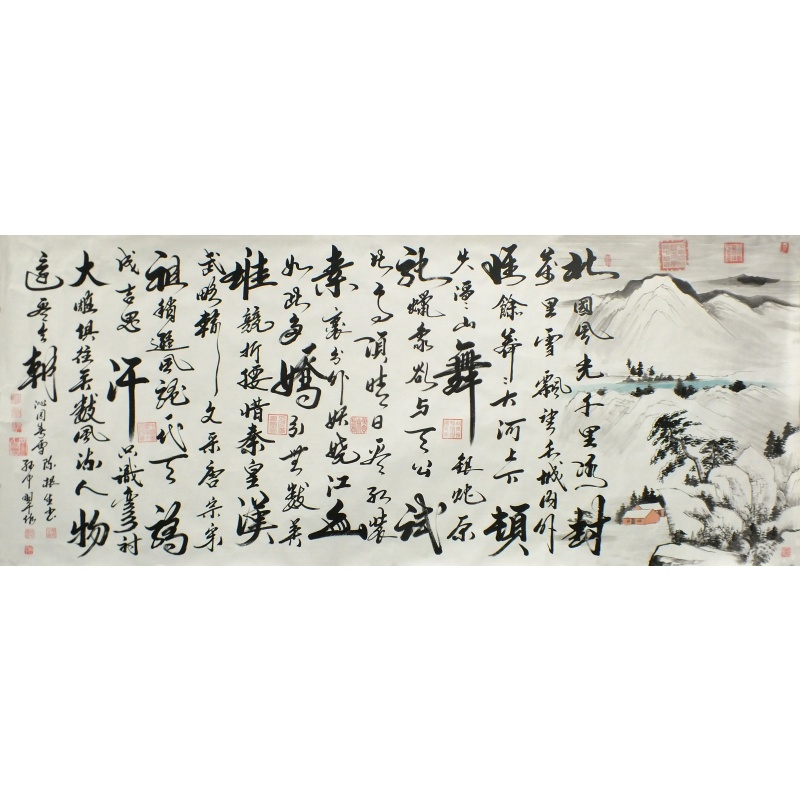 北國风光千里冰封
萬里雪飄望長城內外
惟餘莽莽大河上下頓
失滔滔山舞銀蛇原
馳蠟象欲与天公試
比高須晴日看红裝
素裹分外妖嬈江山
如此多嬌引無數英
雄競折腰惜秦皇漢
武略輸文采唐宗宋
祖稍遜風騷一代天驕
成吉思汗只識彎弓射
大雕俱往矣數風流人物
還看今朝
沁园春雪 陈振生书